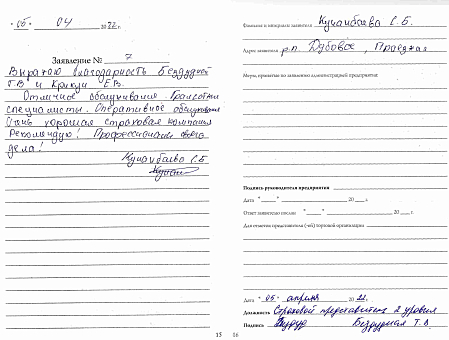 "05" 04 2022 г.
Заявление № 7
Выражаю благодарность
Г.В и Крикун Е.В.
Отличное обслуживание. Грамотные
специалисты. Оперативное обслуживание
Очень хорошая страховая компания
Рекомендую! Профессионалы своего
дела!
Кунаибаева С.Б
15
Фамилия и инициалы заявителя Кунаибаева С.Б.
Адрес заявителя р.п. Дубовое, Проезжая
Меры, принятые по заявлению администрацией предприятия:
Подпись руководителя предприятия
Дата " " 20 г.
Ответ заявителю послан " " 20 г.
Для отметок представителя (-ей) торговой организации
Дата "05" апреля 2022 г.
Должность Страховой представитель 2 уровня
Подпись Т.В.
16